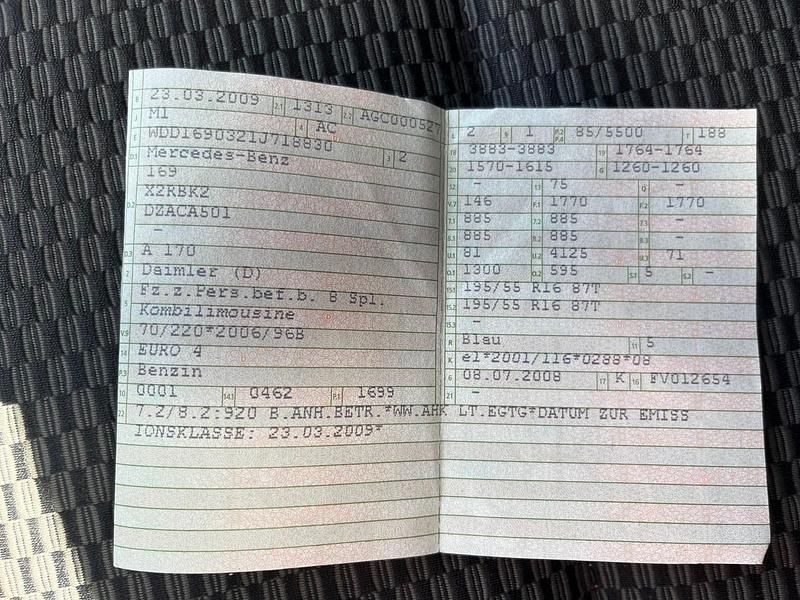 B 23.03.2009 2.1 1313 2.2 AGC000527
J M1 4 AC
E WDD1690321J718830
D.1 Mercedes-Benz 3 2
169
D.2 X2RBK2
DZACA501
-
D.3 A 170
2 Daimler (D)
5 Fz.z.Pers.bef.b. 8 Spl.
Kombilimousine
V.9 70/220*2006/96B
14 EURO 4
P.3 Benzin
10 0001 14.1 0462 P.1 1699
L 2 9 1 P.2 P.4 85/5500 T 188
18 3883-3883 19 1764-1764
20 1570-1615 G 1260-1260
12 - 13 75 Q -
V.7 146 F.1 1770 F.2 1770
7.1 885 7.2 885 7.3 -
8.1 885 8.2 885 8.3 -
U.1 81 U.2 4125 U.3 71
O.1 1300 O.2 595 S.1 5 S.2 -
15.1 195/55 R16 87T
15.2 195/55 R16 87T
15.3 -
R Blau 11 5
K e1*2001/116*0288*08
6 08.07.2008 17 K 16 FV012654
21 -
22 7.2/8.2:920 B.ANH.BETR.*WW.AHK LT.EGTG*DATUM ZUR EMISS
IONSKLASSE: 23.03.2009*